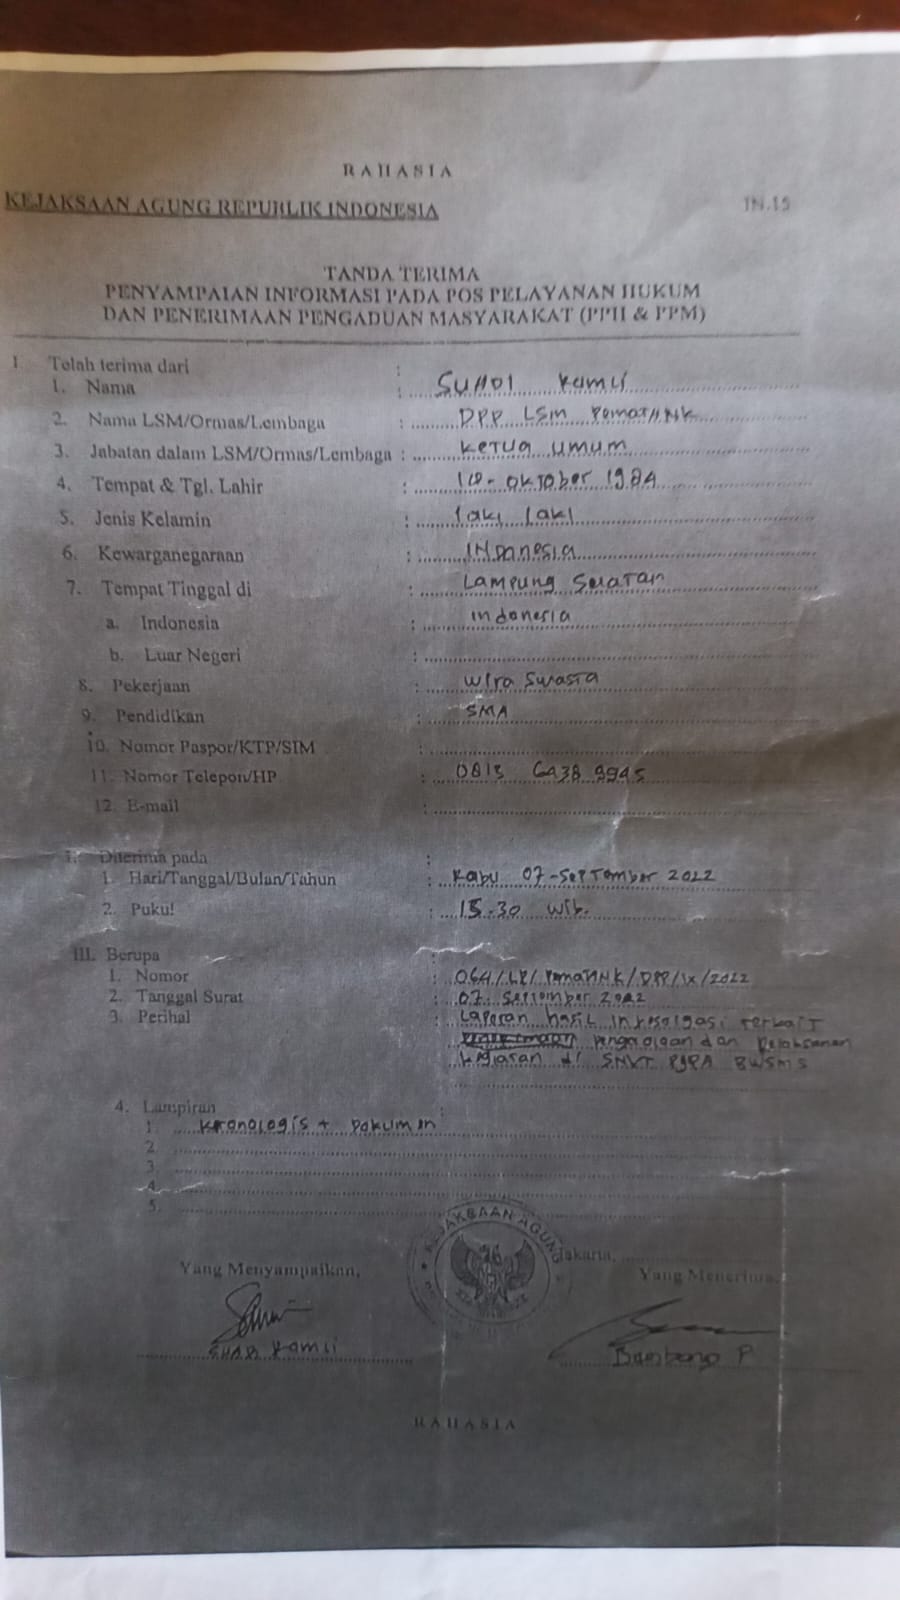 RAHASIA
KEJAKSAAN AGUNG REPUBLIK INDONESIA
IN.15
TANDA TERIMA
PENYAMPAIAN INFORMASI PADA POS PELAYANAN HUKUM
DAN PENERIMAAN PENGADUAN MASYARAKAT (PPH & PPM)
I Telah terima dari :
1. Nama : SUHDI Kamli
2. Nama LSM/Ormas/Lembaga : DPP LSM
3. Jabatan dalam LSM/Ormas/Lembaga : Ketua Umum
4. Tempat & Tgl. Lahir : Oktober 1984
5. Jenis Kelamin : laki laki
6. Kewarganegaraan : INDonesia
7. Tempat Tinggal di : Lampung Selatan
a. Indonesia : indonesia
b. Luar Negeri :
8. Pekerjaan : Wira Swasta
9. Pendidikan : SMA
10. Nomor Paspor/KTP/SIM :
11. Nomor Telepon/HP : 0813 6438 9945
12. E-mail :
Diterima pada :
1. Hari/Tanggal/Bulan/Tahun : Rabu 07-September 2022
2. Pukul : 15.30 Wib.
III. Berupa :
1. Nomor : 064/LP/ /DPP/IX/2022
2. Tanggal Surat : 07 September 2022
3. Perihal : Laporan hasil terkait
Pengadaan dan Pelaksanaan
kegiatan di SNVT PJPA BWSMS
4. Lampiran :
1. Kronologis + Dokumen
2.
3.
4.
5.
KEJAKSAAN AGUNG
Jakarta,
Yang Menyampaikan,
Yang Menerima,
Kamli
Bambang P
RAHASIA